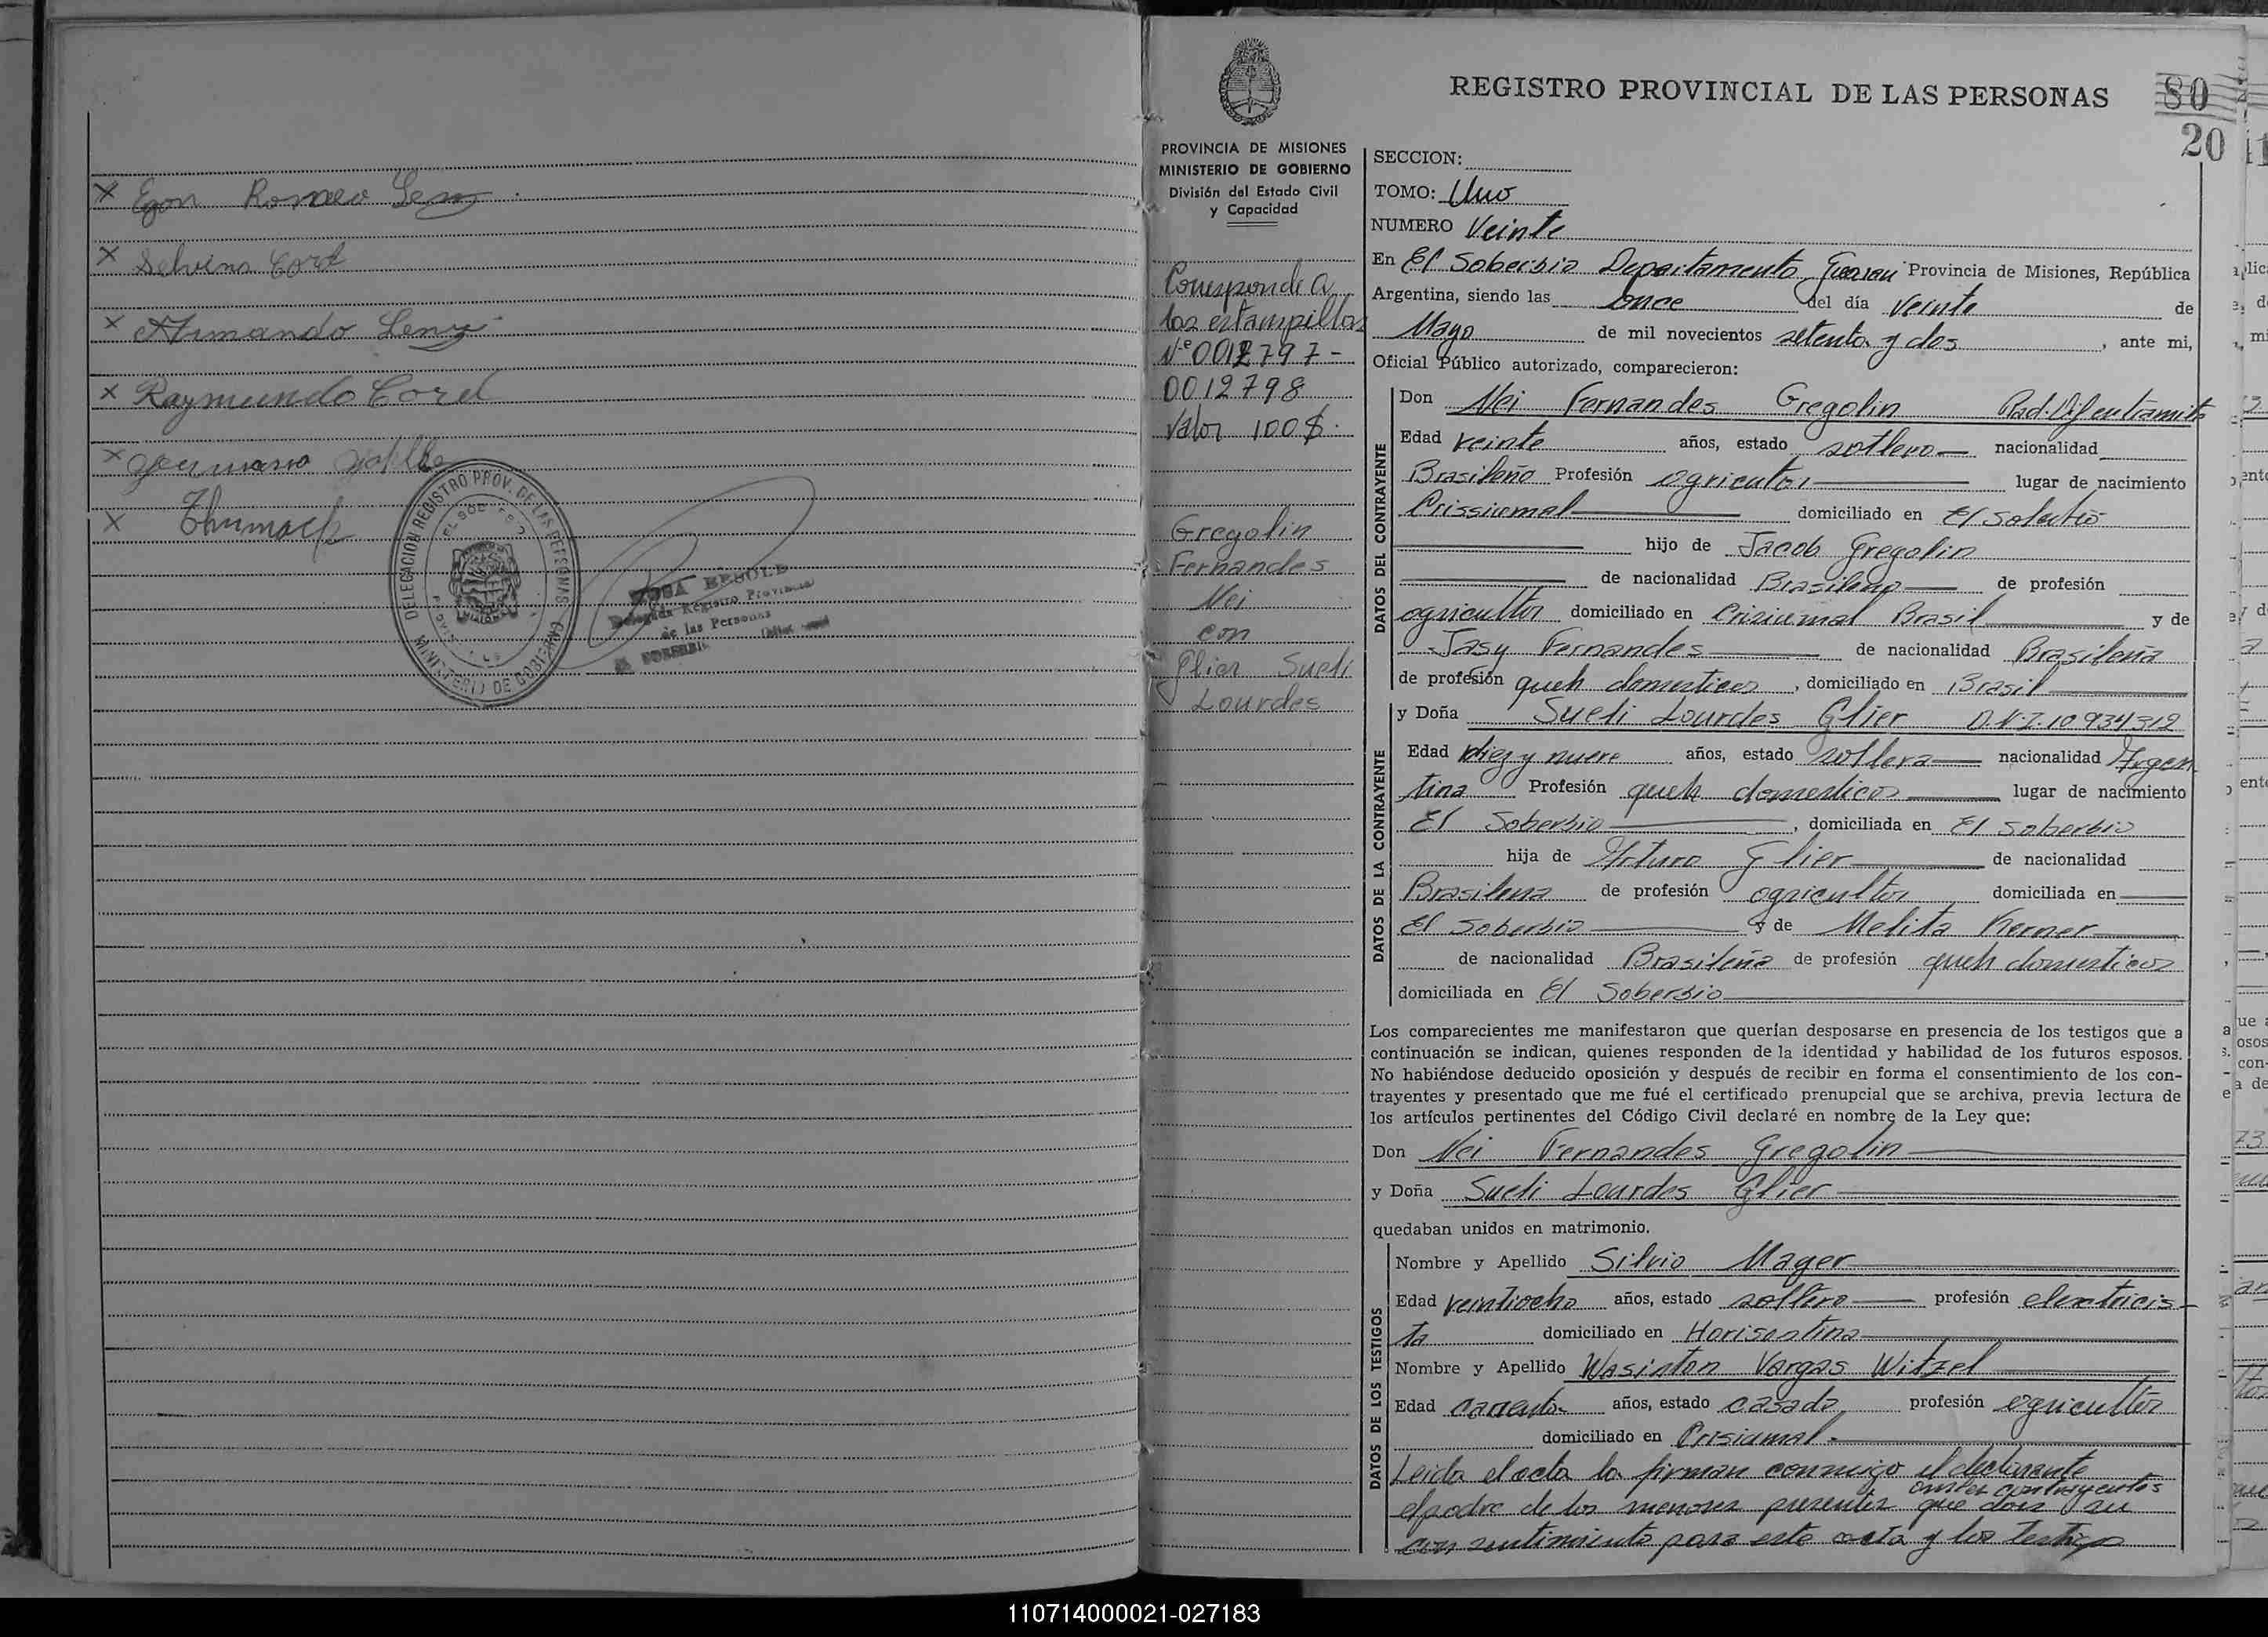 x Egon Romeo Lenz
x Selvino Cord
x Armando Lenz
x Raymundo Cord
x
x Thumack
DELEGACION REGISTRO PROV. DE LAS PERSONAS
MINISTERIO DE GOBIERNO
ROSA
Delegada Registro Provincial
de las Personas
SOBERBIO
PROVINCIA DE MISIONES
MINISTERIO DE GOBIERNO
División del Estado Civil
y Capacidad
Corresponde a
las estampillas
Nº 0012797-
0012798
Valor 100$.
Gregolin
Fernandes
Nei
con
Glier Sueli
Lourdes
REGISTRO PROVINCIAL DE LAS PERSONAS
80
20
SECCION:
TOMO: Uno
NUMERO Veinte
En El Soberbio Departamento Guarani Provincia de Misiones, República
Argentina, siendo las once del día veinte de
Mayo de mil novecientos setenta y dos, ante mi,
Oficial Público autorizado, comparecieron:
DATOS DEL CONTRAYENTE
Don Nei Fernandes Gregolin
Edad veinte años, estado soltero nacionalidad
Brasileño Profesión agricultor lugar de nacimiento
Crissiumal domiciliado en El Soberbio
hijo de Jacob Gregolin
de nacionalidad Brasileno de profesión
agricultor domiciliado en Crisiumal Brasil y de
Jasy Fernandes de nacionalidad Brasileña
de profesión queh domesticos, domiciliado en Brasil
DATOS DE LA CONTRAYENTE
y Doña Sueli Lourdes Glier D.N.I. 10 934312
Edad diez y nueve años, estado soltera nacionalidad Argen
tina Profesión queh domesticos lugar de nacimiento
El Soberbio, domiciliada en El Soberbio
hija de Arturo Glier de nacionalidad
Brasilena de profesión agricultor domiciliada en
El Soberbio y de Melita Kerner
de nacionalidad Brasileña de profesión queh domesticos
domiciliada en El Soberbio
Los comparecientes me manifestaron que querían desposarse en presencia de los testigos que a
continuación se indican, quienes responden de la identidad y habilidad de los futuros esposos.
No habiéndose deducido oposición y después de recibir en forma el consentimiento de los con-
trayentes y presentado que me fué el certificado prenupcial que se archiva, previa lectura de
los artículos pertinentes del Código Civil declaré en nombre de la Ley que:
Don Nei Fernandes Gregolin
y Doña Sueli Lourdes Glier
quedaban unidos en matrimonio.
DATOS DE LOS TESTIGOS
Nombre y Apellido Silvio Mager
Edad veintiocho años, estado soltero profesión electricis-
ta domiciliado en Horisontina
Nombre y Apellido Wasinton Vargas Witzel
Edad cuarenta años, estado casado profesión agricultor
domiciliado en Crisiumal.
Leida el acta la firman conmigo el declarante
contrayentes
el padre de los menores presentes que dan su
consentimiento para este acta y los testigos
110714000021-027183